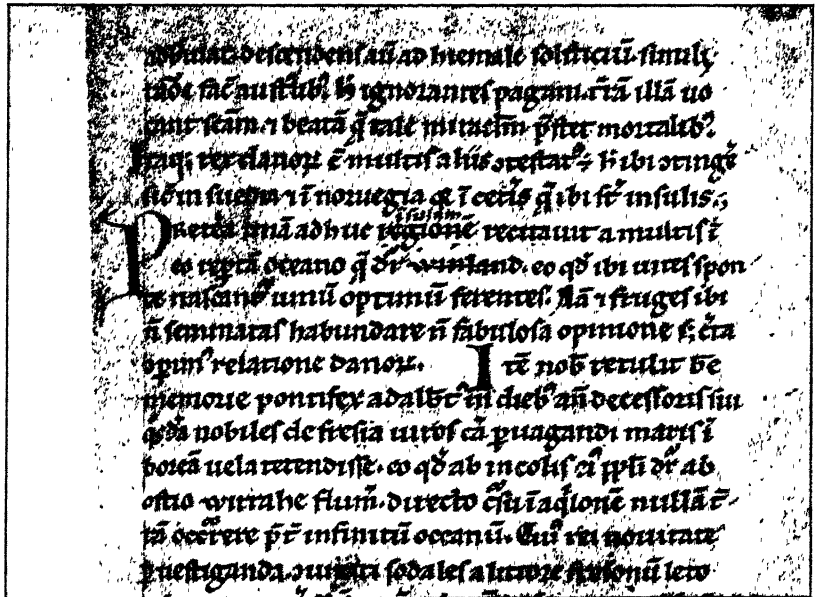 ambulat. descendens aū ad hiemale solsticiū simili
raōe fac̄ austͬlib⁹. h̄ ignorantes pagani. t̄rā illā uo
cant sc̄am. ⁊ beatā q̄ tale miraclm̄ p̄stet mortalib⁹.
Itaq; rex danoꝝ c̄ multis aliis ↄtestat⁹ ÷ h̄ ibi ↄtinḡe
sic̄ in suedia ⁊ ī noruegia & ī cet̄is q̄ ibi st̄ insulis.
Pret̄ea unā adhuc regionē recitauit a multis ī
insulam
eo rep̄tā oceano q̄ dr̄ winland. eo qd̄ ibi uites spon
te nascant᷑ uinū optimū ferentes. Nā ⁊ fruges ibi
n̄ seminatas habundare n̄ fabulosa opinione s; c̄ta
ↄpim⁹ relatione danoꝝ. Itē nob̄ retulit b̄e
memorie pontifex adalb̄t⁹ in dieb⁹ an̄decessoris sui
q̊sdā nobiles de fresia uiros cā ꝑuagandi maris ī
boreā uela tetendisse. eo qd̄ ab incolis ei⁹ ppl̄i dr̄ ab
ostio wirrahe flum̄. directo c̄su ī aq̇lonē nullā t̄
rā occ̄rere p̄t̄ infinitū oceanū. Cui⁹ rei nouitate
ꝑuestiganda. ↄiurati sodales a litore fresonū leto